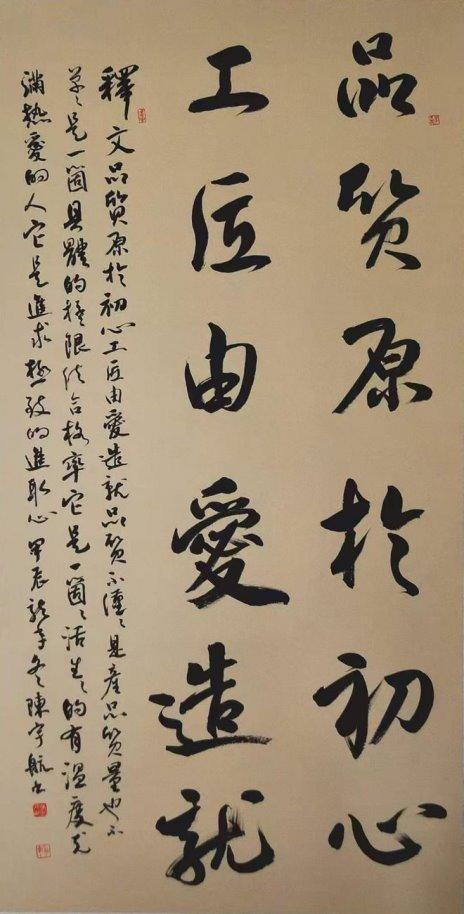 品質原於初心
工匠由愛造就
釋文品質原於初心工匠由愛造就品質不僅僅是產品質量也不
單單是一箇具體的極限值合格率它是一箇箇活生生的有溫度充
滿熱愛的人它是追求極致的進取心甲辰龍年冬陳宇航書